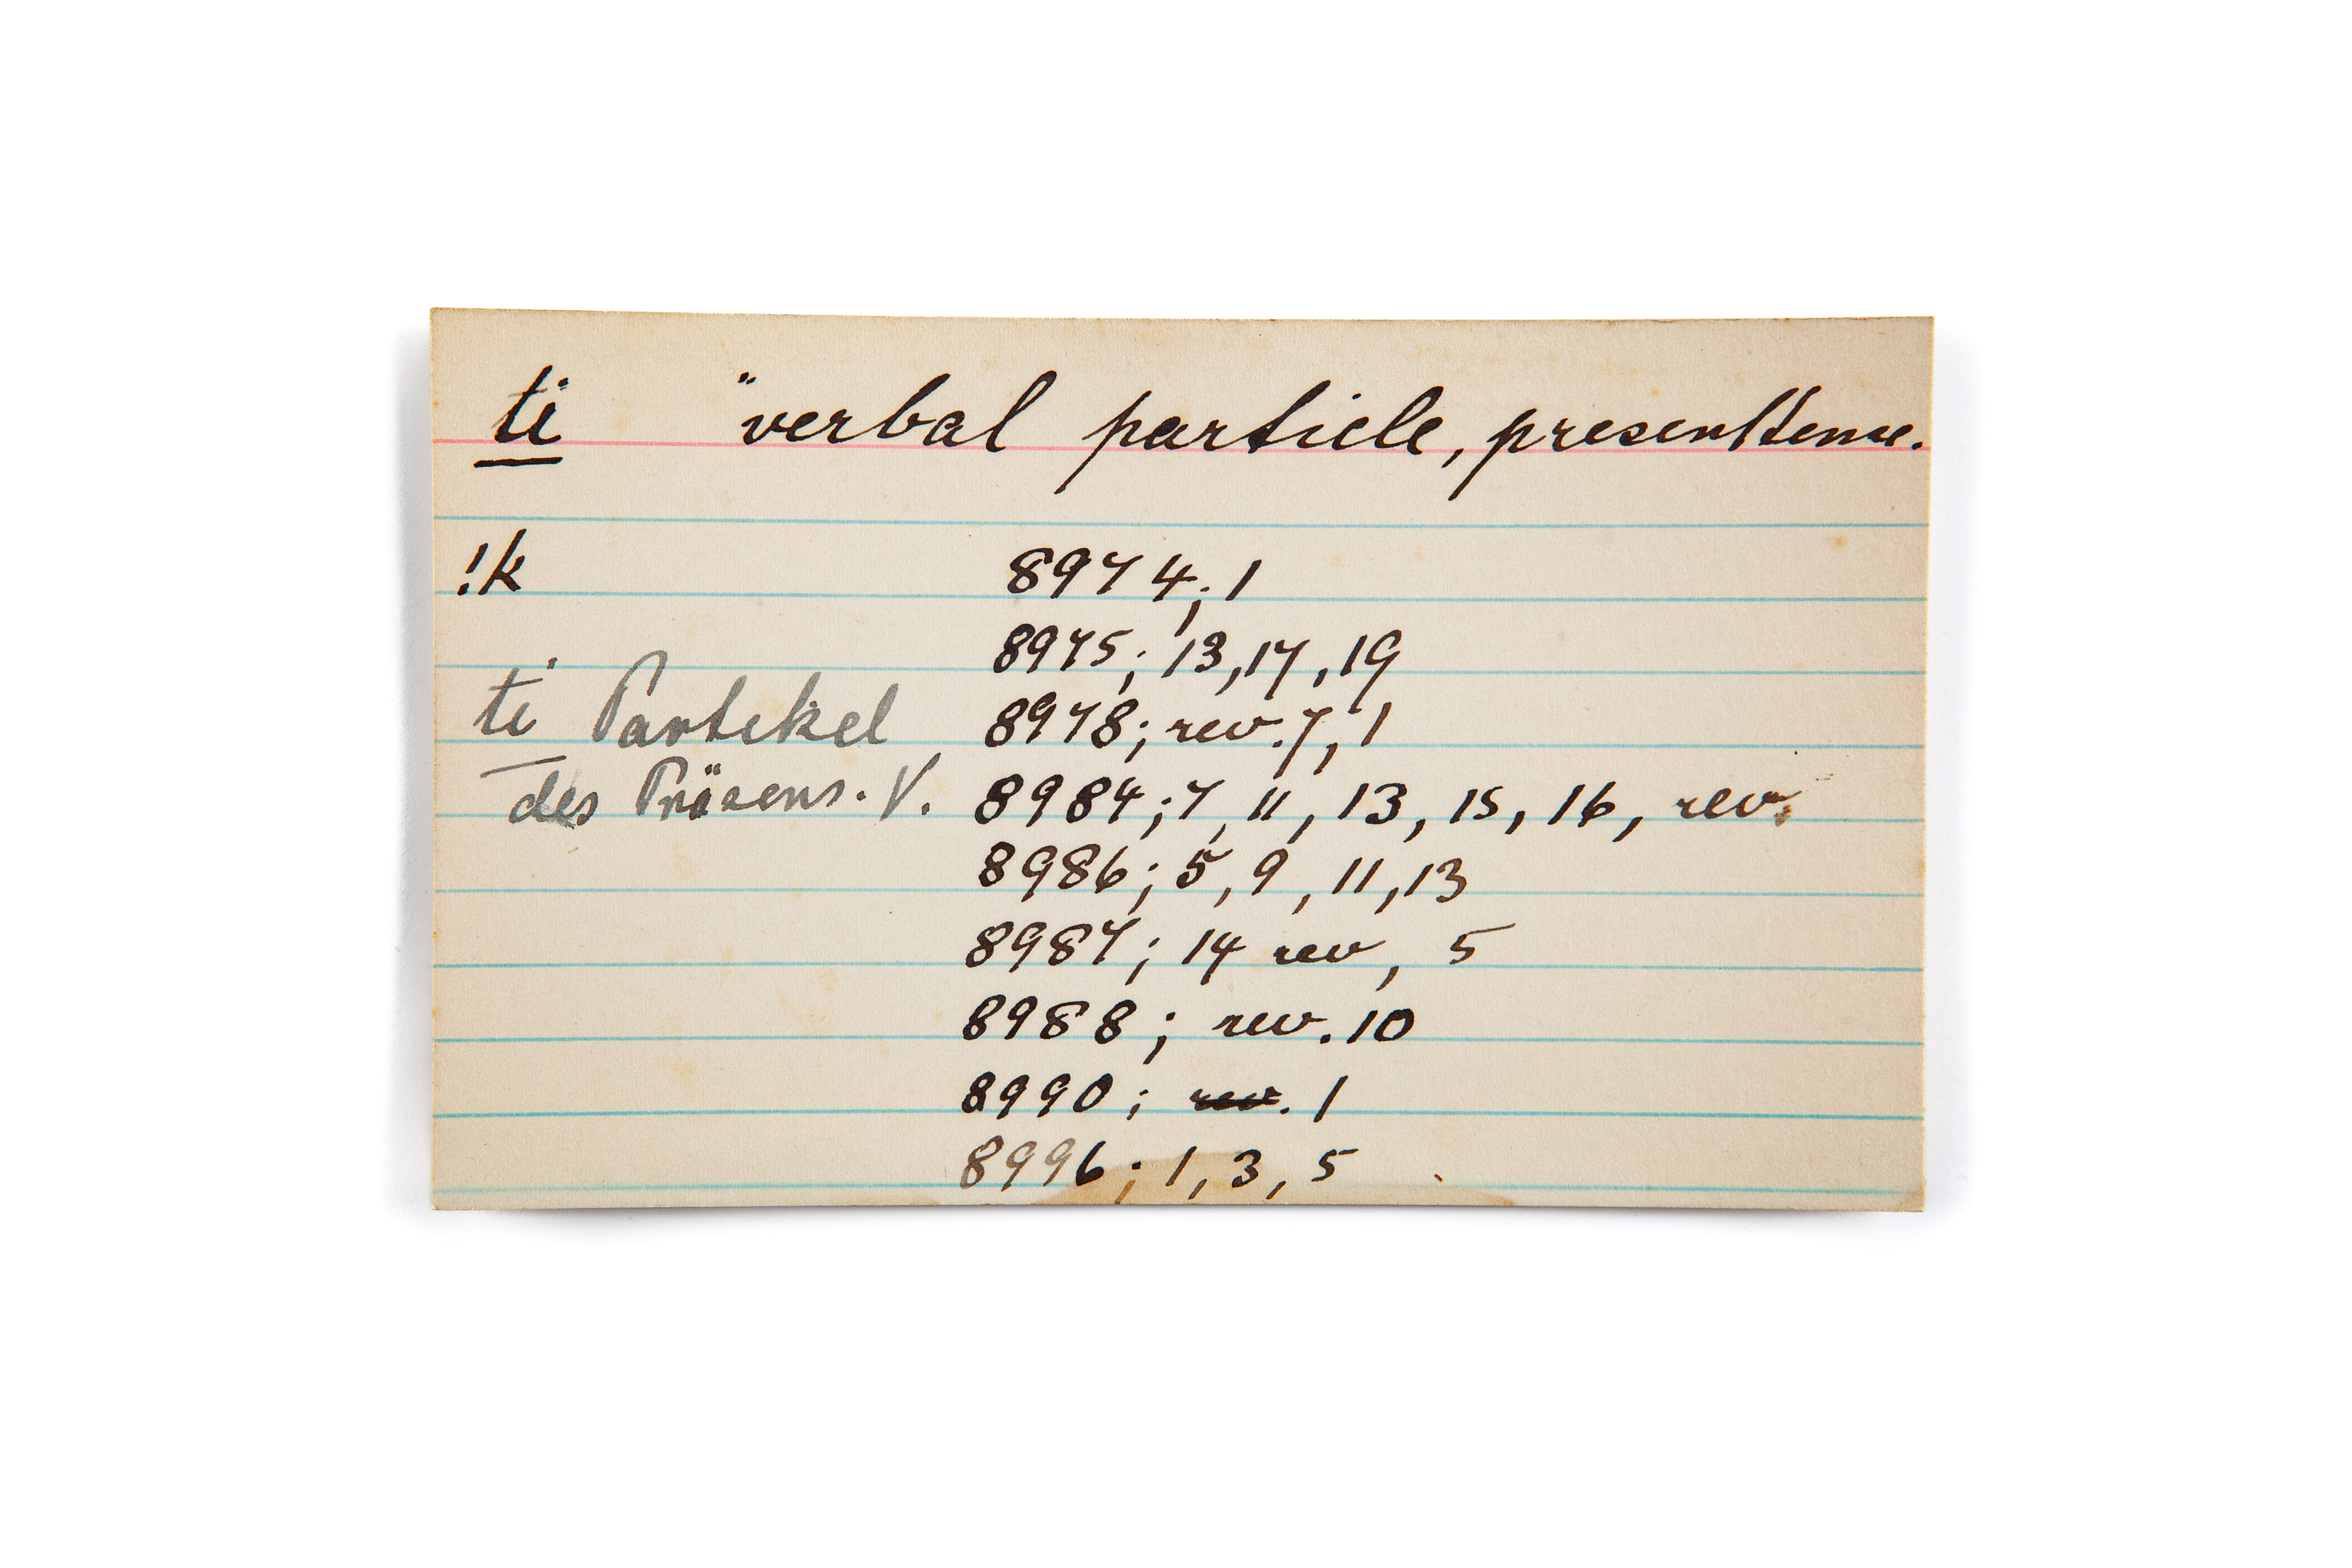 ti "verbal particle, present tense.
!k 8974; 1
8975; 13, 17, 19
ti Partikel 8978; rev. 7, 1
des Präsens. V. 8984; 7, 11, 13, 15, 16, rev.
8986; 5, 9, 11, 13
8987; 14 rev, 5
8988; rev. 10
8990; rev. 1
8996; 1, 3, 5